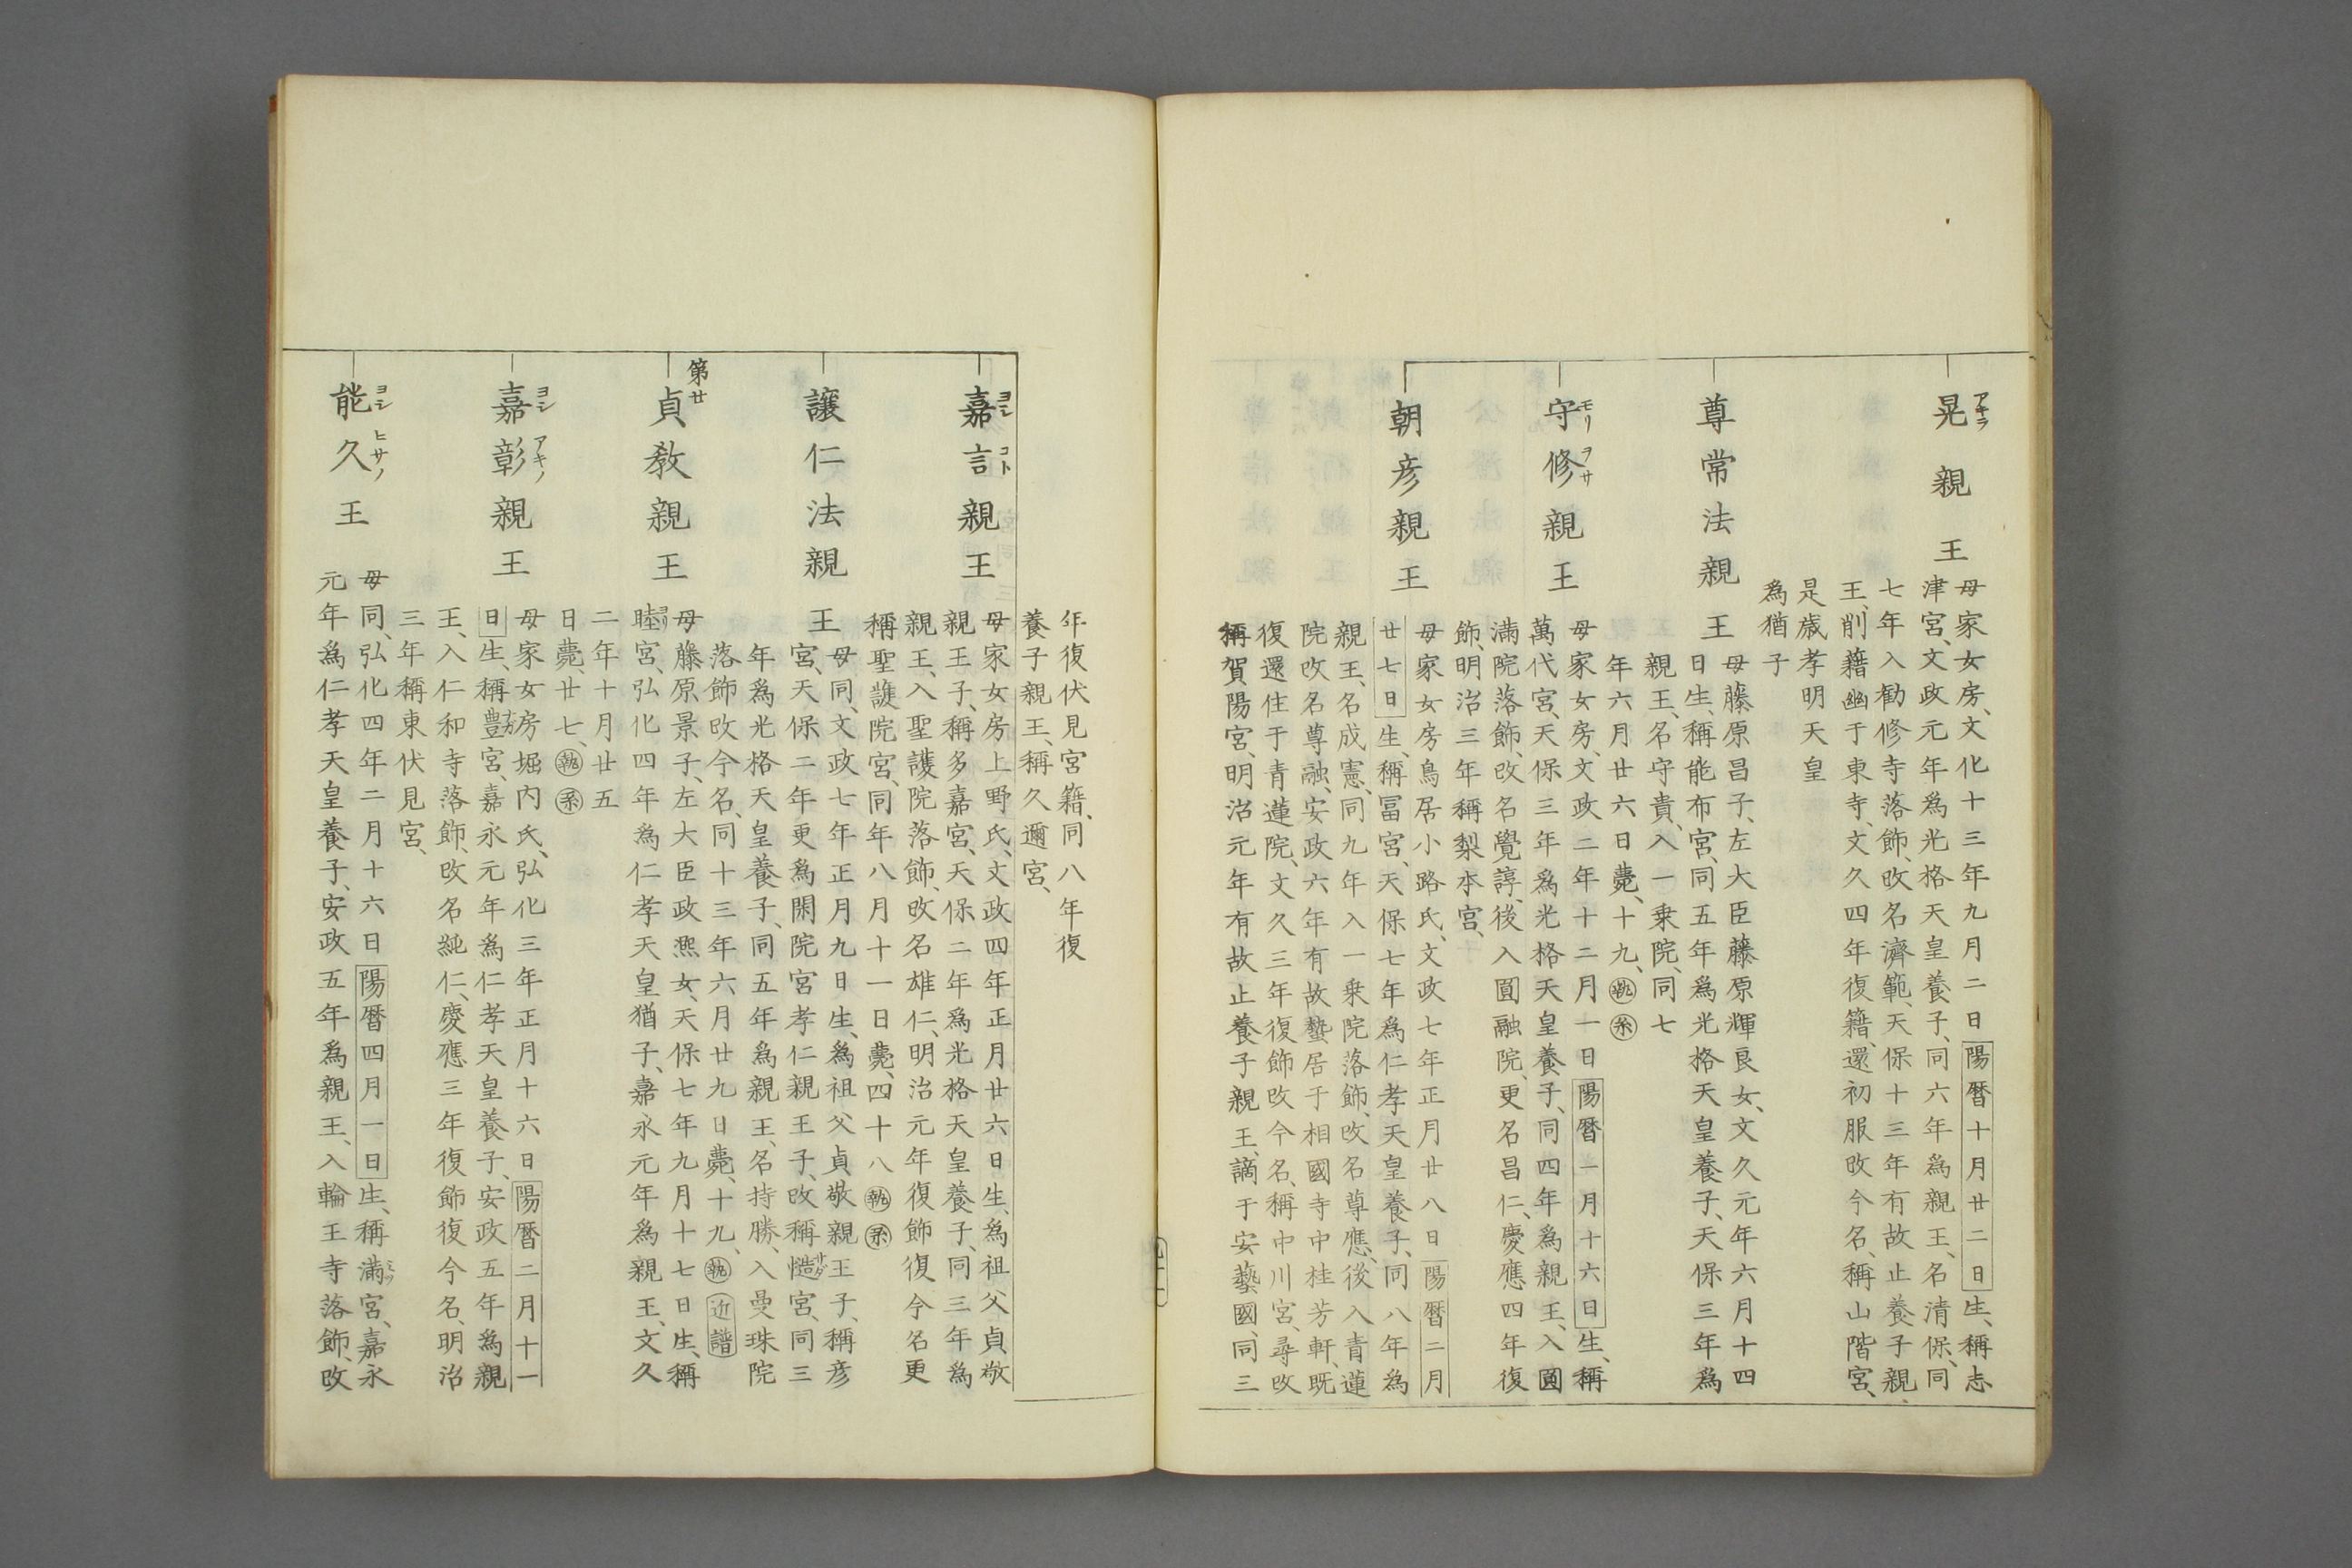 晃親王
アキラ
母家女房、文化十三年九月二日陽暦十月廿二日生、稱志
津宮、文政元年爲光格天皇養子、同六年爲親王、名清保、同
七年入勧修寺落飾、改名濟範、天保十三年有故止養子親
王、削籍幽于東寺、文久四年復籍、還初服改今名、稱山階宮、
是歳孝明天皇
為猶子
尊常法親王
母藤原昌子、左大臣藤原輝良女、文久元年六月十四
日生、稱能布宮、同五年爲光格天皇養子、天保三年爲
親王、名守貴、入一乗院、同七
年六月廿六日薨、十九、執系
守修親王
モリヲサ
母家女房、文政二年十二月一日陽暦一月十六日生、稱
萬代宮、天保三年爲光格天皇養子、同四年爲親王、入圓
滿院落飾、改名覺諄、後入圓融院、更名昌仁、慶應四年復
飾、明治三年稱梨本宮、
朝彦親王
母家女房鳥居小路氏、文政七年正月廿八日陽暦二月
廿七日生、稱冨宮、天保七年爲仁孝天皇養子、同八年爲
親王、名成憲、同九年入一乗院落飾、改名尊應、後入青蓮
院改名尊融、安政六年有故蟄居于相國寺中桂芳軒、既
復還住于青蓮院、文久三年復飾改今名、稱中川宮、尋改
稱賀陽宮、明治元年有故止養子親王、謫于安藝國、同三
年復伏見宮籍、同八年復
養子親王、稱久邇宮、
嘉言親王
ヨシコト
母家女房上野氏、文政四年正月廿六日生、為祖父貞敬
親王子、稱多嘉宮、天保二年爲光格天皇養子、同三年爲
親王、入聖護院落飾、改名雄仁、明治元年復飾復今名更
稱聖護院宮、同年八月十一日薨、四十八執系
讓仁法親王
母同、文政七年正月九日生、爲祖父貞敬親王子、稱彦
宮、天保二年更爲閑院宮孝仁親王子、改稱慥宮、同三
年爲光格天皇養子、同五年爲親王、名持勝、入曼珠院
落飾改今名、同十三年六月廿九日薨、十九、執近譜
第廿
貞教親王
母藤原景子、左大臣政熙女、天保七年九月十七日生、稱
睦宮、弘化四年為仁孝天皇猶子、嘉永元年爲親王、文久
二年十月廿五
日薨、廿七、執系
嘉彰親王
ヨシアキノ
母家女房堀内氏、弘化三年正月十六日陽暦二月十一
日生、稱豊宮、嘉永元年爲仁孝天皇養子、安政五年爲親
王、入仁和寺落飾、改名純仁、慶應三年復飾復今名、明治
三年稱東伏見宮、
能久王
ヨシヒサノ
母同、弘化四年二月十六日陽暦四月一日生、稱滿宮、嘉永
元年爲仁孝天皇養子、安政五年爲親王、入輪王寺落飾、改